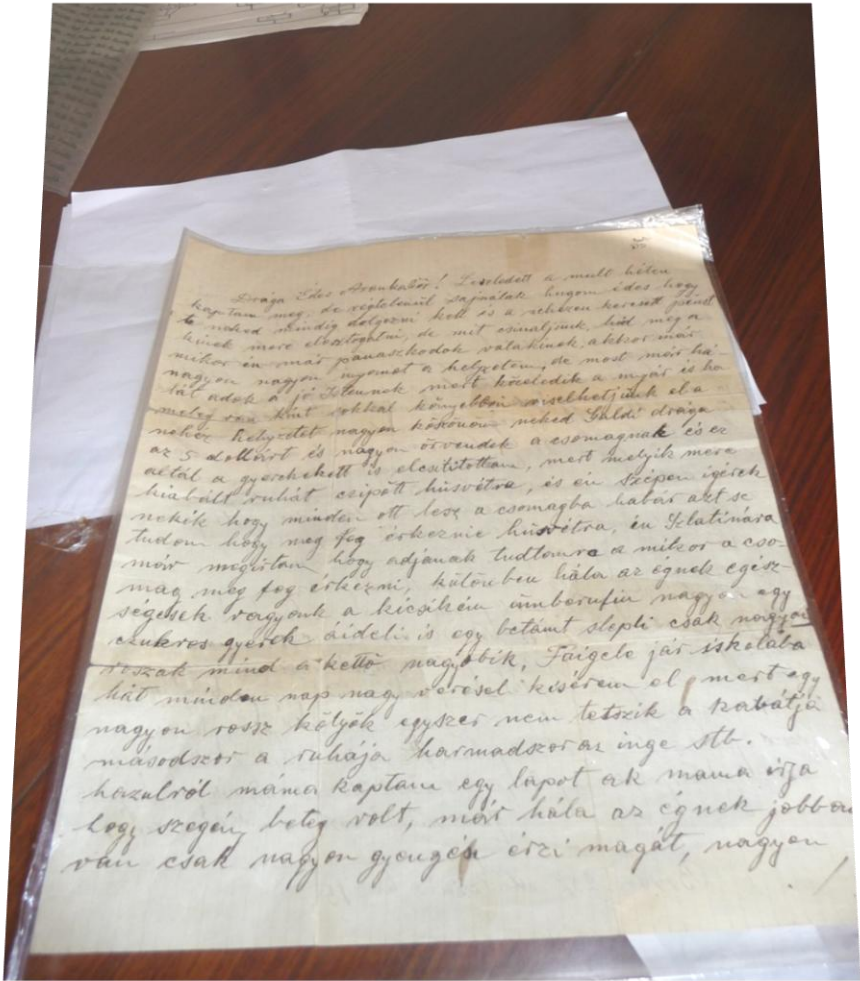 Drága Édes Arankulám! Leveledett a mult héten
kaptam meg, de végtelenül sajnálak hugom édes hogy
te neked mindig dolgozni kell és a nehezen keresett pénzt
kinek mere elosztogatni, de mit csináljunk, hid meg a
mikor én már panaszkodok valakinek akkor már
nagyon nagyon nyomot a helyzetem, de most már há-
lát adok a jó Istennek mert közeledik a nyár és ha
meleg van kint sokkal könyebben viselhetjünk el a
nehéz helyzetet nagyon köszönöm néked Goldi drága
az 5 dollárt és nagyon örvendek a csomagnak és ez
által a gyerekekett is elcsitítottam, mert melyik mere
kiabált ruhát czipőtt húsvétra, és én szépen igérek
nekik hogy minden ott lesz a csomagba habár azt se
tudom hogy meg fog érkeznie húsvétra, én Szlatinára
már megirtam hogy adjanak tudtomra a mikor a cso-
mag meg fog érkezni, különben hála az égnek egész-
ségesek vagyunk a kicsikém nagyon egy
czukros gyerek áideli is egy betámt slepli csak nagyon
roszak mind a kettő nagyobik, Faigele jár iskolába
hát minden nap nagy veréssel kisérem el, mert egy
nagyon rossz kölyök egyszer nem tetszik a kabátja
másodszor a ruhája harmadszor az inge stb.
hazulról máma kaptam egy lapot ak mama irja
hogy szegény beteg volt, már hála az égnek jobban
van csak nagyon gyengén érzi magát, nagyon